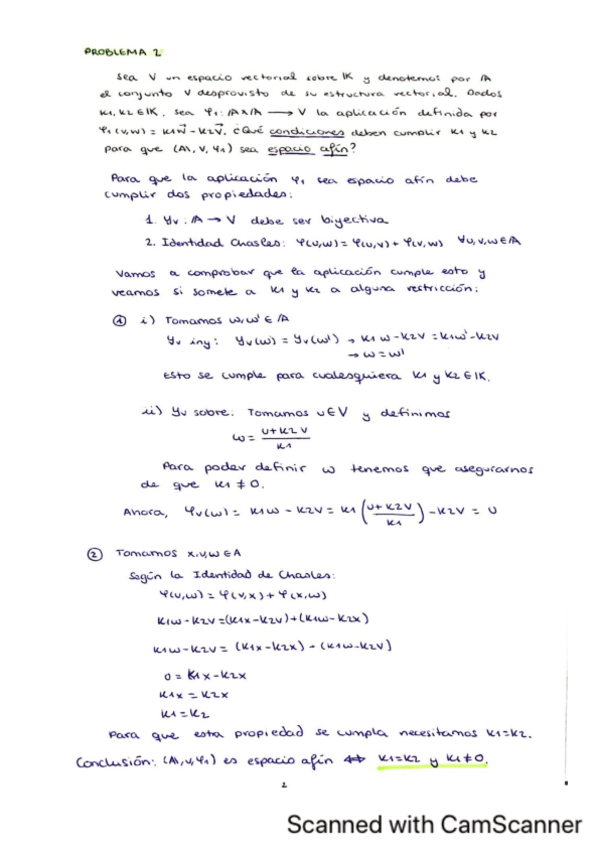 PROBLEMA 2
Sea V un espacio vectorial sobre IK y denotemos por /A
el conjunto V desprovisto de su estructura vectorial. Dados
K1, K2 ∈ IK, sea φ1: /A x /A → V la aplicación definida por
φ1(v,w) = K1w⃗ - K2v⃗. ¿Qué condiciones deben cumplir K1 y K2
para que (A, V, φ1) sea espacio afín?
Para que la aplicación φ1 sea espacio afín debe
cumplir dos propiedades:
1. φv: /A → V debe ser biyectiva
2. Identidad Chasles: φ(u,w) = φ(u,v) + φ(v,w) ∀u,v,w ∈ /A
Vamos a comprobar que la aplicación cumple esto y
veamos si somete a K1 y K2 a alguna restricción:
① i) Tomamos w,w' ∈ /A
φv iny: φv(w) = φv(w') → K1w - K2v = K1w' - K2v
→ w = w'
Esto se cumple para cualesquiera K1 y K2 ∈ IK.
ii) φv sobre: Tomamos u ∈ V y definimos
w = (u + K2v)/K1
Para poder definir w tenemos que asegurarnos
de que K1 ≠ 0.
Ahora, φv(w) = K1w - K2v = K1((u + K2v)/K1) - K2v = u
② Tomamos x,v,w ∈ A
Según la Identidad de Chasles:
φ(v,w) = φ(v,x) + φ(x,w)
K1w - K2v = (K1x - K2v) + (K1w - K2x)
K1w - K2v = (K1x - K2x) - (K1w - K2v)
0 = K1x - K2x
K1x = K2x
K1 = K2
Para que esta propiedad se cumpla necesitamos K1 = K2.
Conclusión: (A, V, φ1) es espacio afín ⟺ K1 = K2 y K1 ≠ 0.
2
Scanned with CamScanner